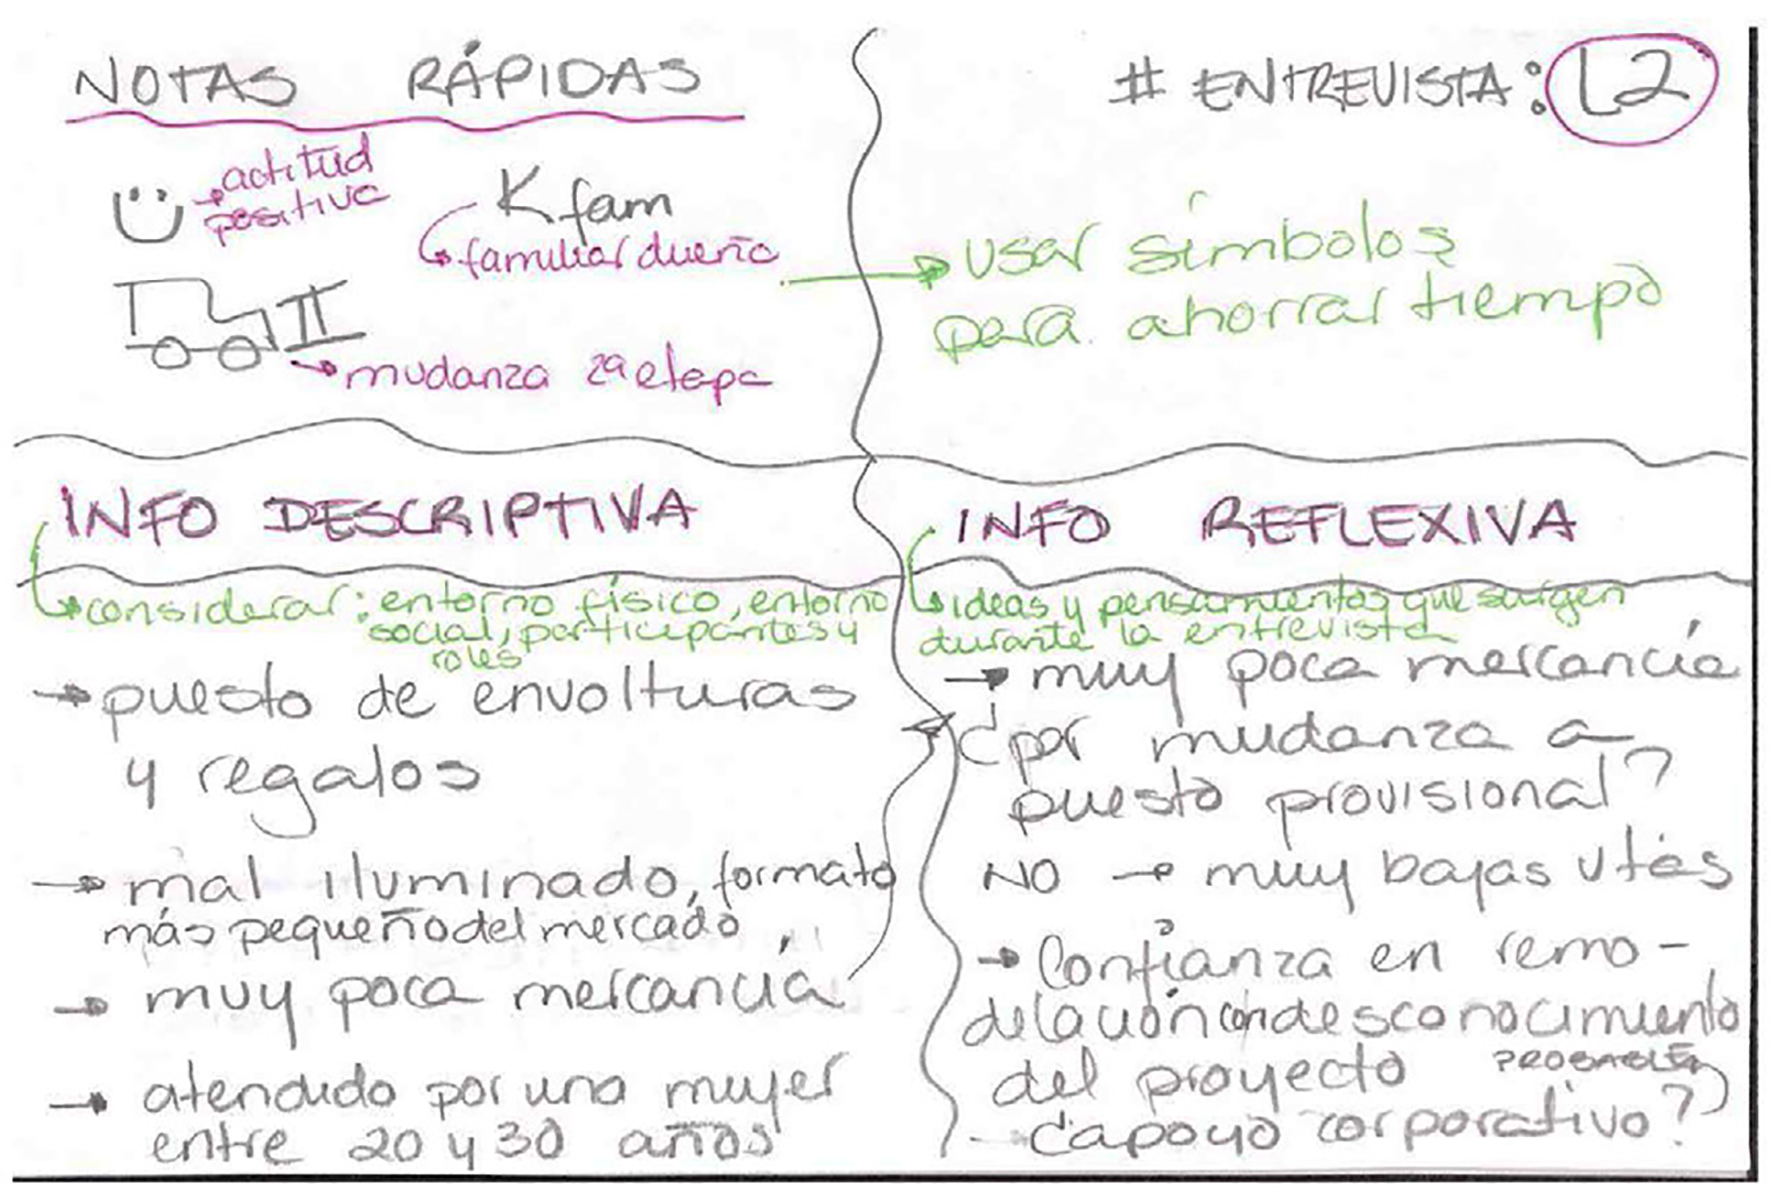 NOTAS RÁPIDAS
# ENTREVISTA: L2
actitud
positiva
K fam
familiar dueño
II
mudanza 2ª etapa
usar símbolos
para ahorrar tiempo
INFO DESCRIPTIVA
considerar: entorno físico, entorno
social, participantes y
roles
puesto de envolturas
y regalos
mal iluminado, formato
más pequeño del mercado
muy poca mercancía
atendido por una mujer
entre 20 y 30 años
INFO REFLEXIVA
ideas y pensamientos que surgen
durante la entrevista
muy poca mercancía
¿por mudanza a
puesto provisional?
NO → muy bajas vtas
Confianza en remo-
delación con desconocimiento
del proyecto
¿apoyo corporativo?